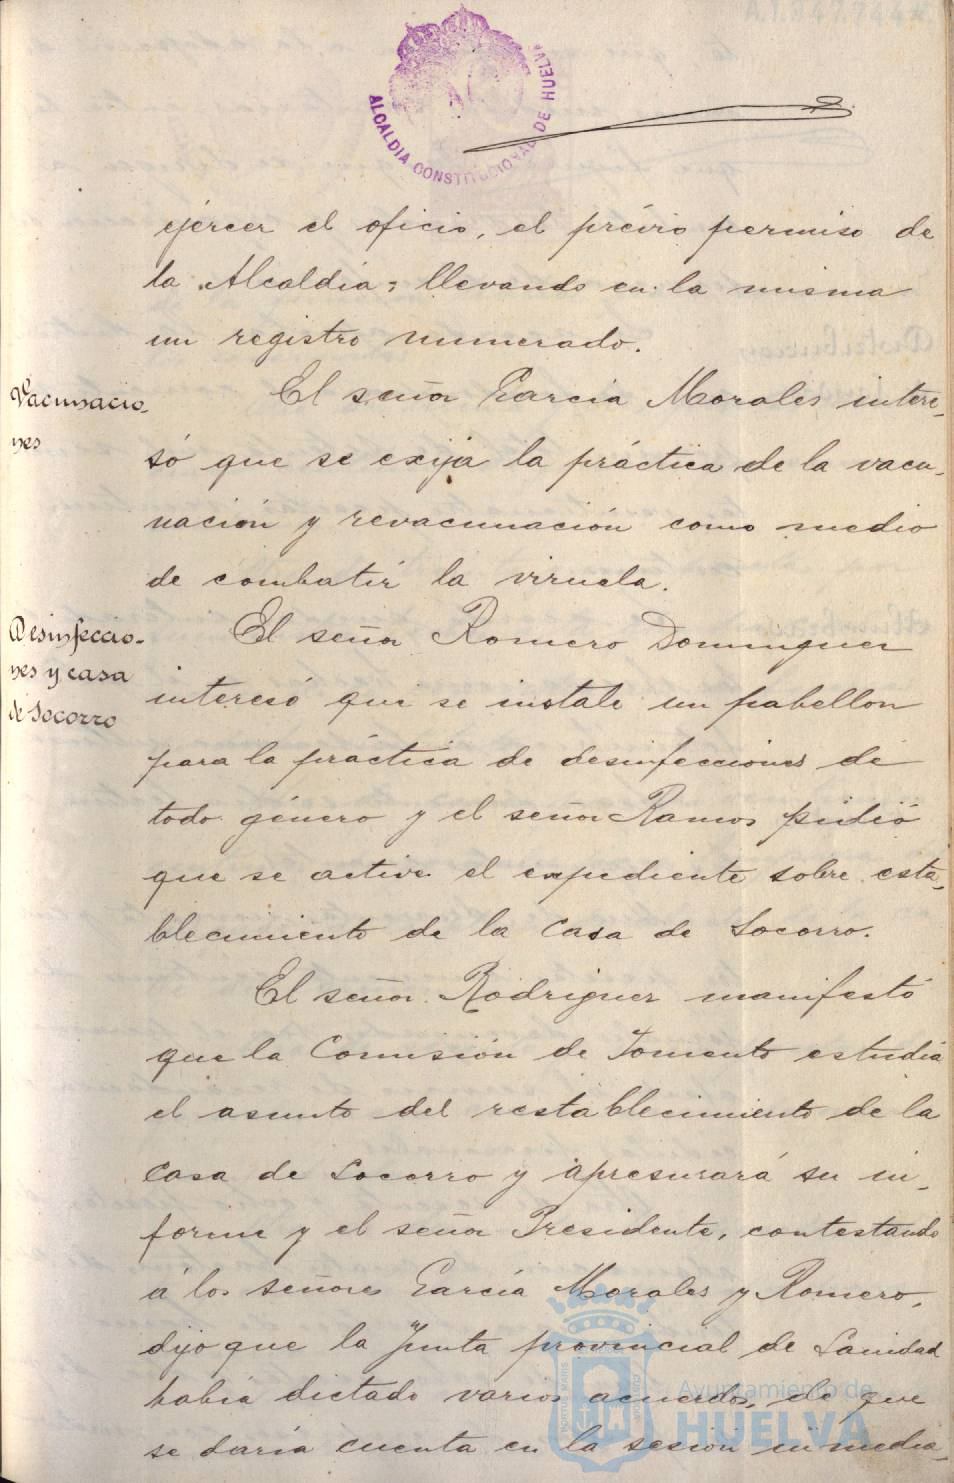 ALCALDIA CONSTITUCIONAL DE HUELVA
ejercer el oficio, el prévio permiso de
la Alcaldía; llevando en la misma
un registro numerado.
Vacunacio-
nes
El señor García Morales intere-
só que se exija la práctica de la vacu-
nación y revacunación como medio
de combatir la viruela.
Desinfeccio-
nes y casa
de Socorro
El señor Romero Dominguez
interesó que se instale un pabellon
para la práctica de desinfecciones de
todo género y el señor Ramos pidió
que se active el expediente sobre esta-
blecimiento de la Casa de Socorro.
El señor Rodriguez manifestó
que la Comisión de Fomento estudia
el asunto del restablecimiento de la
Casa de Socorro y apresurará su in-
forme y el señor Presidente, contestando
á los señores García Morales y Romero,
dijo que la Junta provincial de Sanidad
habia dictado varios acuerdos, de que
se daria cuenta en la sesion inmedia-
Ayuntamiento de
HUELVA